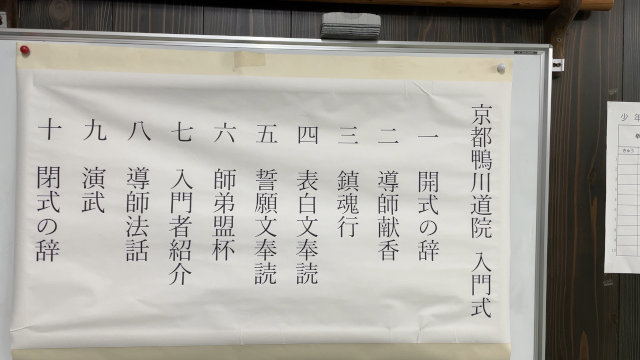 京都鴨川道院 入門式
一 開式の辞
二 導師献香
三 鎮魂行
四 表白文奉読
五 誓願文奉読
六 師弟盟杯
七 入門者紹介
八 導師法話
九 演武
十 閉式の辞
少年